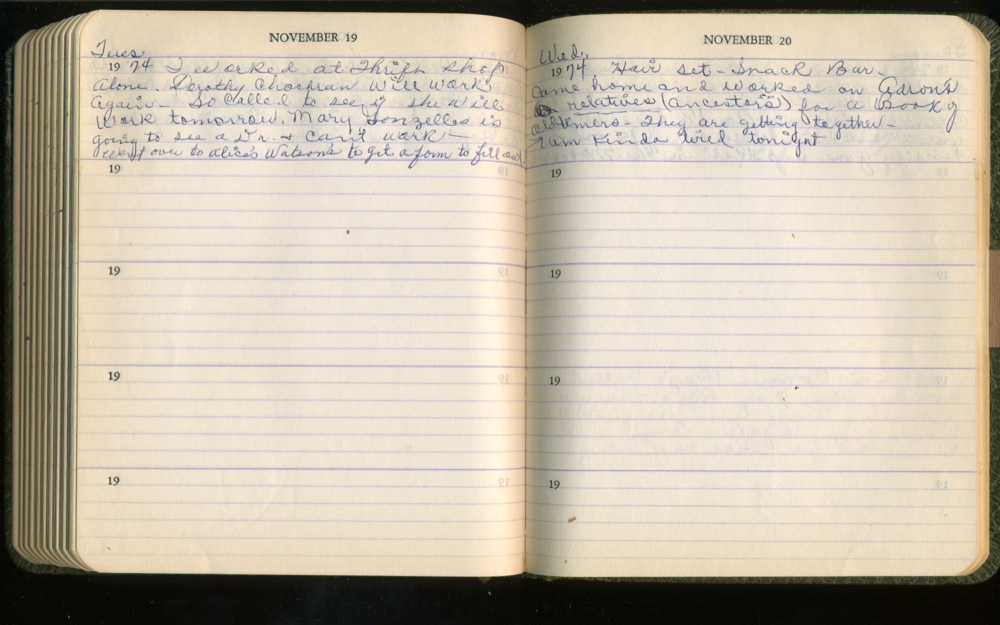 NOVEMBER 19
Tues
1974 I worked at Thrift Shop
alone. Dorothy Chochran will work
again - So called to see if she will
work tomorrow. Mary Gonzelles is
going to see a Dr. & can't work -
went over to Alice Watson's to get a form to fill out
19
19
19
19
NOVEMBER 20
Wed.
1974 Hair set - Snack Bar -
Came home and worked on
relatives (ancestors) for a book of
oldtimers - They are getting together -
I am kinda tired tonight
19
19
19
19